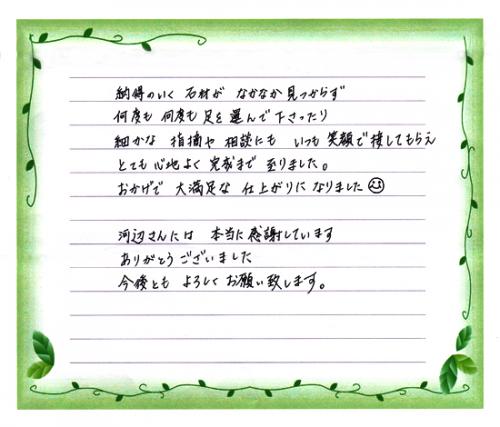 納得のいく 石材が なかなか 見つからず
何度も 何度も 足を 運んで 下さったり
細かな 指摘や 相談にも いつも 笑顔で 接してもらえ
とても 心地よく 完成まで 至りました。
おかげで 大満足な 仕上がりに なりました☺
河辺さんには 本当に 感謝しています
ありがとう ございました
今後とも よろしく お願い致します。